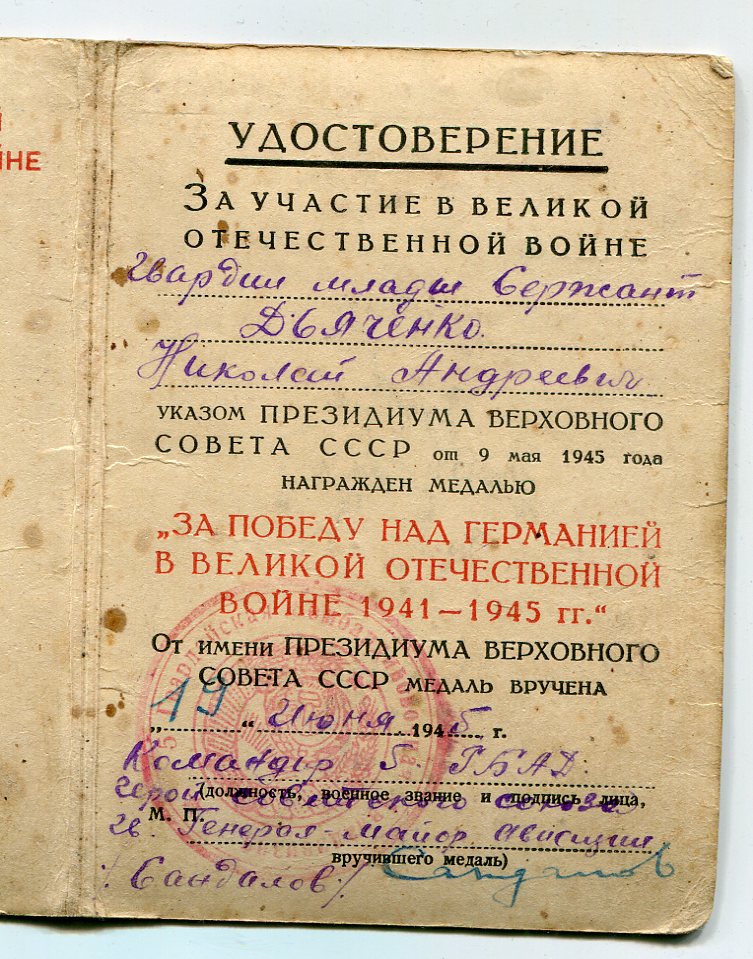 Й
ЙНЕ
УДОСТОВЕРЕНИЕ
ЗА УЧАСТИЕ В ВЕЛИКОЙ
ОТЕЧЕСТВЕННОЙ ВОЙНЕ
Гвардии младш Сержант
Дьяченко
Николай Андреевич
УКАЗОМ ПРЕЗИДИУМА ВЕРХОВНОГО
СОВЕТА СССР от 9 мая 1945 года
НАГРАЖДЕН МЕДАЛЬЮ
„ЗА ПОБЕДУ НАД ГЕРМАНИЕЙ
В ВЕЛИКОЙ ОТЕЧЕСТВЕННОЙ
ВОЙНЕ 1941—1945 гг.“
ОТ ИМЕНИ ПРЕЗИДИУМА ВЕРХОВНОГО
СОВЕТА СССР МЕДАЛЬ ВРУЧЕНА
„19“ Июня 1945 г.
Командир 5 ГБАД
(должность, военное звание и подпись лица,
Герой Советского Союза
М. П.
Гв. Генерал-Майор авиации
вручившего медаль)
/Сандалов/ Сандалов